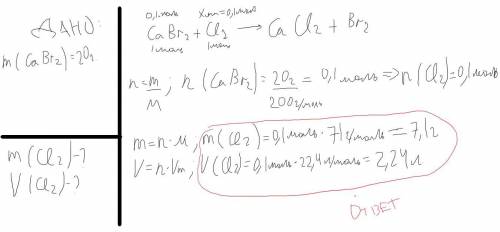 ДАНО:
m(CaBr2)=20г.
m(Cl2)-?
V(Cl2)-?
0,1моль Xмоль=0,1моль
CaBr2 + Cl2 → CaCl2 + Br2
1моль 1моль
n=m/M; n(CaBr2)=20г/200г/моль=0,1моль=>n(Cl2)=0,1моль
m=n·M; m(Cl2)=0,1моль·71г/моль=7,1г
V=n·Vm; V(Cl2)=0,1моль·22,4л/моль=2,24л
ОТВЕТ